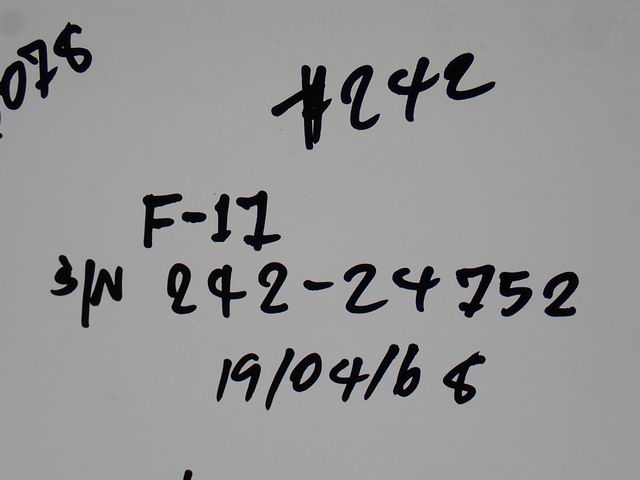 078
#242
F-17
S/N 242-24752
19/04/68